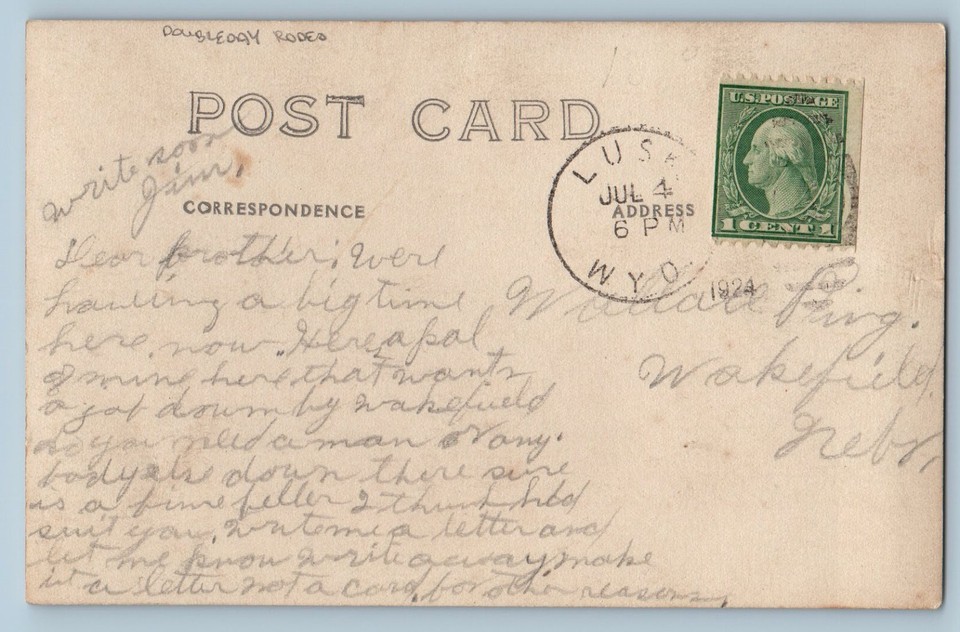 DOUBLEDAY RODEO
POST CARD
U.S. POSTAGE
1 CENT 1
LUSK
JUL 4
6 PM
WYO.
1924
write soon
Jim.
CORRESPONDENCE
ADDRESS
Dear brother; Were
haveing a big time
here now. Heres a pal
of mine here that wants
a job down by wakefield
do you need a man or any.
body else down there sure
is a fine feller I think he'd
suit you. Write me a letter and
let me know write away, make
it a letter not a card, for other reasons.
Wallace Ring.
Wakefield
Nebr.